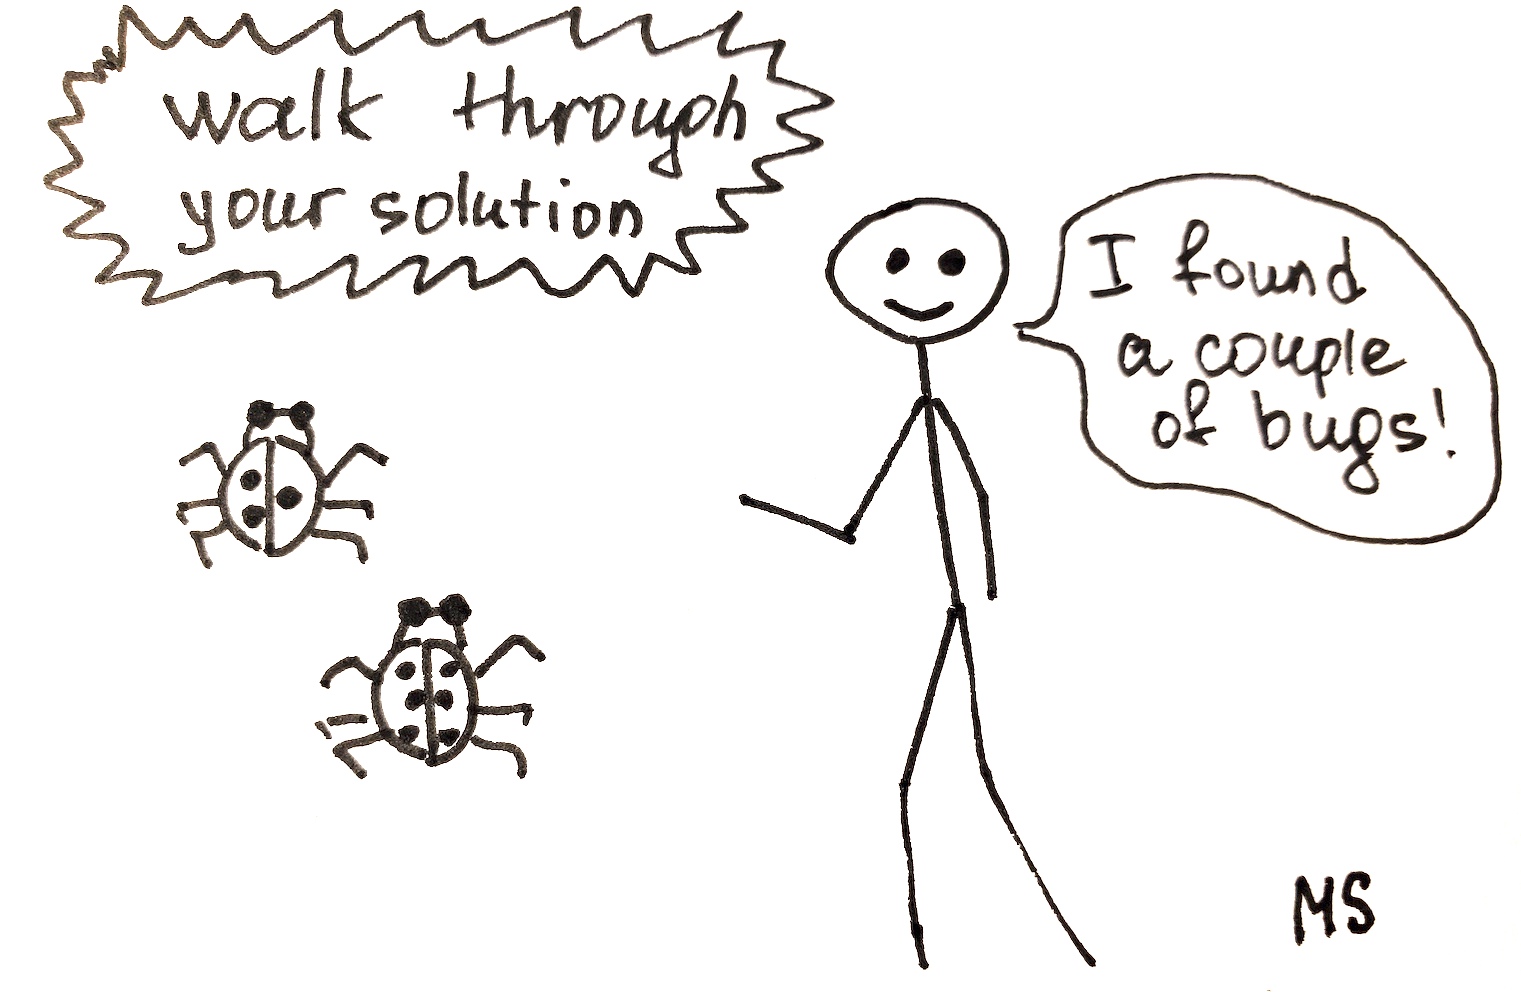 walk through
your solution
I found
a couple
of bugs!
MS